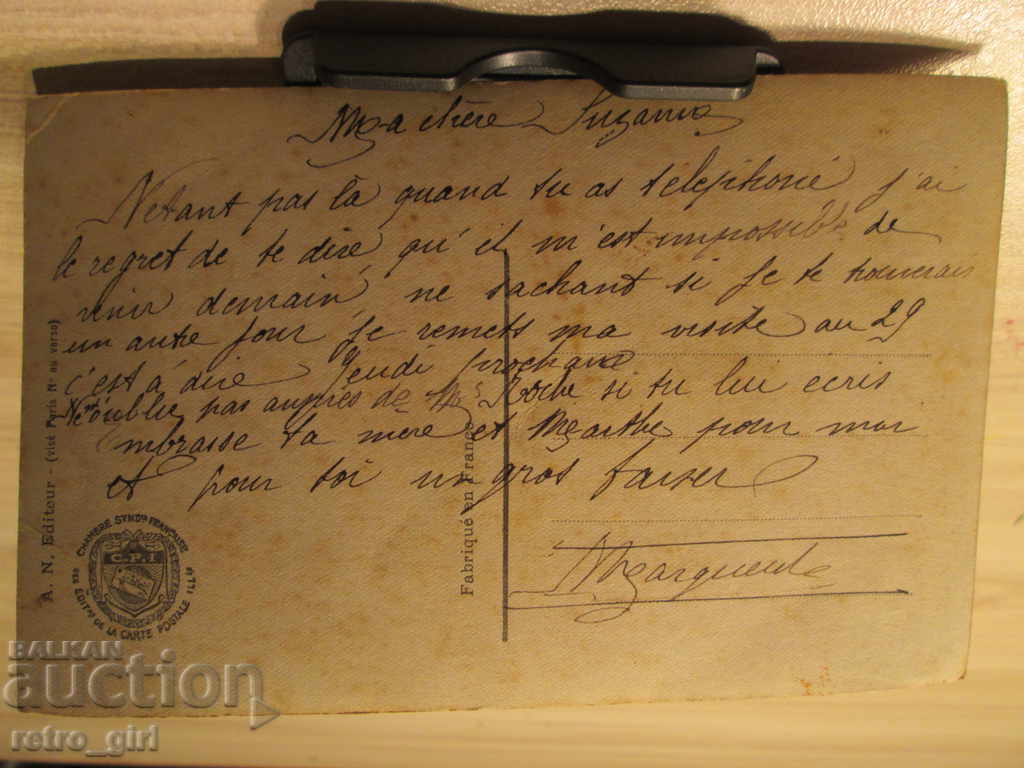 Ma chère Suzanne
N'étant pas là quand tu as téléphoné j'ai
le regret de te dire qu'il m'est impossible de
venir demain, ne sachant si je te trouverais
un autre jour je remets ma visite au 29
c'est à dire Jeudi prochain
N'oublie pas auprès de si tu lui écris
Embrasse ta mère et Marthe pour moi
et pour toi un gros baiser
Marguerite
A. N. Editeur - (visé Paris N° au verso)
Fabriqué en France
CHAMBRE SYNDle FRANÇAISE
DES EDITrs DE LA CARTE POSTALE ILLée
BALKAN
auction
retro_girl